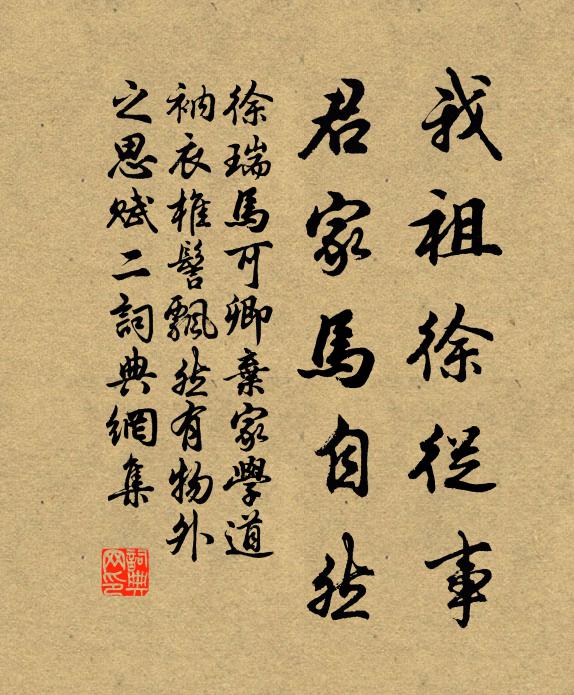 我祖徐從事
君家馬自然
徐瑞馬可卿棄家學道
衲衣椎髻飄然有物外
之思賦二詞典網集
詞典网印